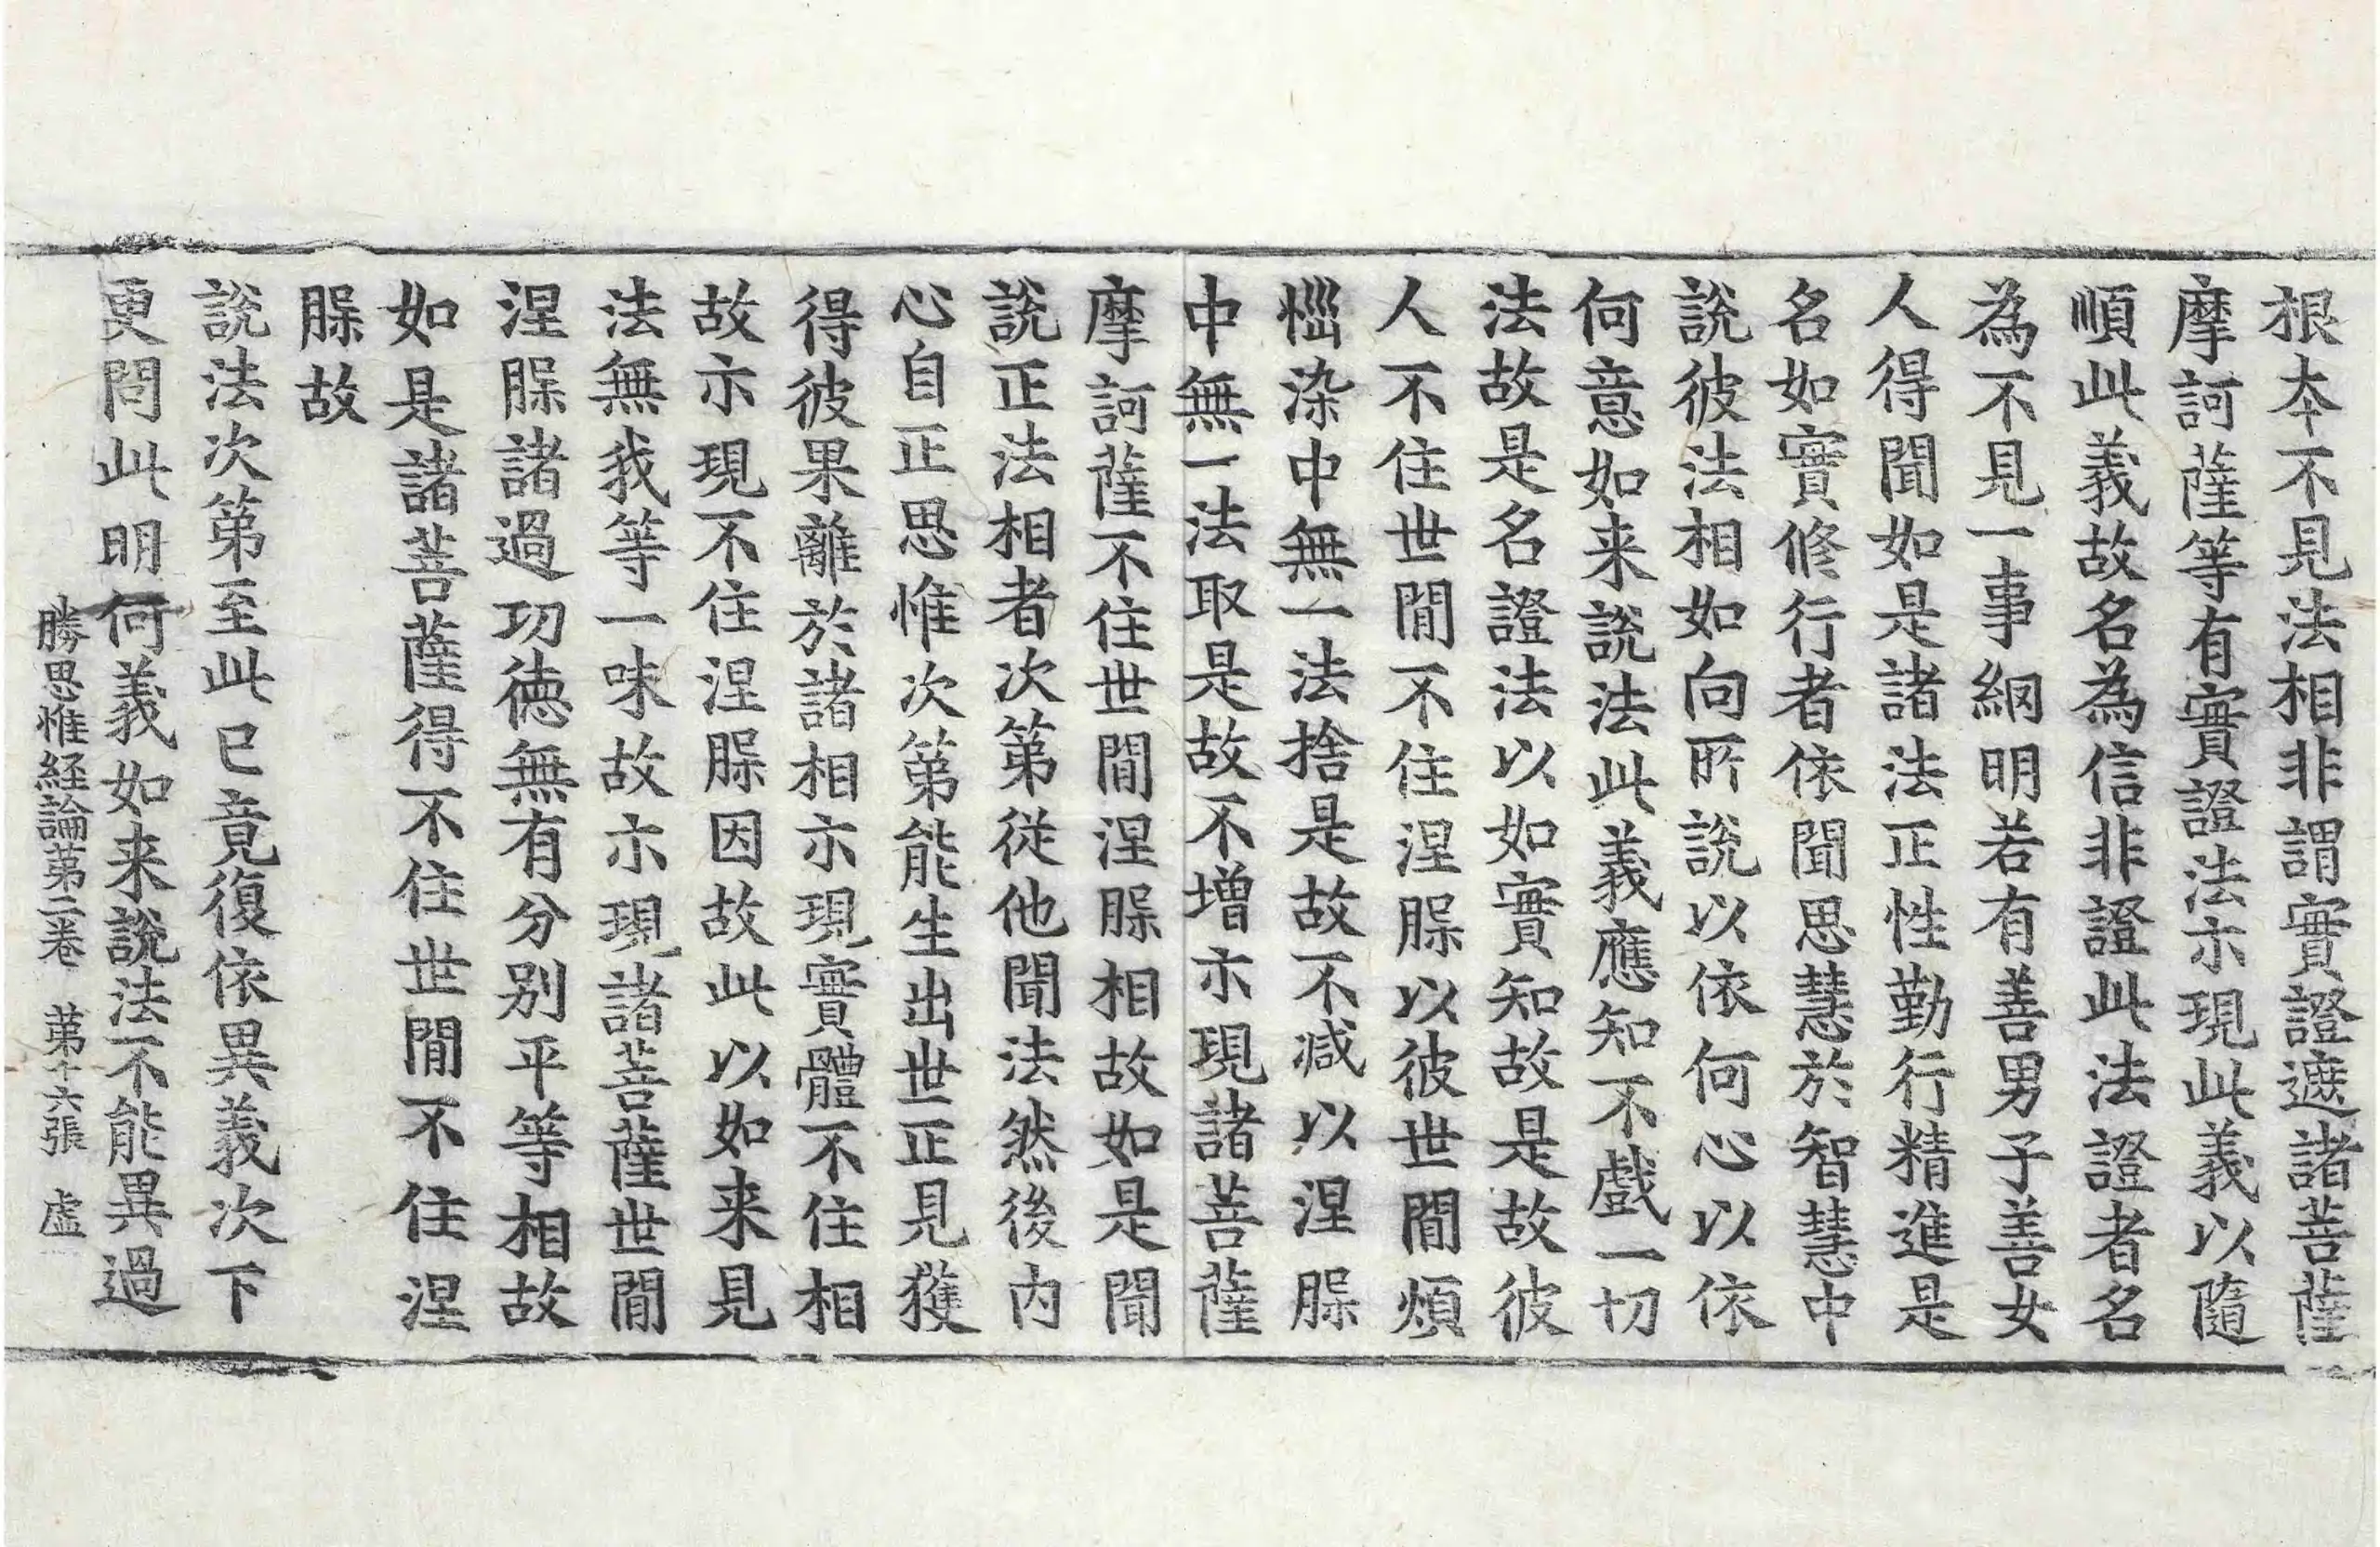 根本不見法相非謂實證遮諸菩薩
摩訶薩等有實證法示現此義以隨
順此義故名為信非證此法證者名
為不見一事網明若有善男子善女
人得聞如是諸法正性勤行精進是
名如實修行者依聞思慧於智慧中
說彼法相如向所說以依何心以依
何意如来說法此義應知不戲一切
法故是名證法以如實知故是故彼
人不住世間不住涅槃以彼世間煩
惱染中無一法捨是故不減以涅槃
中無一法取是故不增示現諸菩薩
摩訶薩不住世間涅槃相故如是聞
說正法相者次第從他聞法然後內
心自正思惟次第能生出世正見獲
得彼果離於諸相示現實體不住相
故示現不住涅槃因故此以如来見
法無我等一味故示現諸菩薩世間
涅槃諸過功德無有分別平等相故
如是諸菩薩得不住世間不住涅
槃故
說法次第至此已竟復依異義次下
更問此明何義如来說法不能異過
勝思惟経論第二卷 第十六張 虛